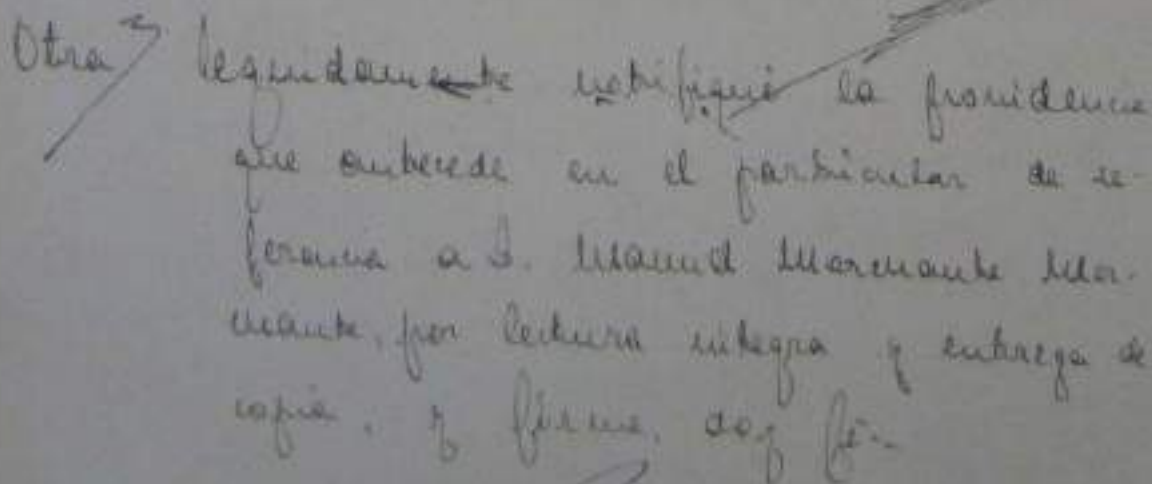 Otra Seguidamente notifiqué la providencia
que antecede en el particular de re-
ferencia a D. Manuel Marchante Mar-
chante, por lectura integra y entrega de
copia, y firma, doy fé.-